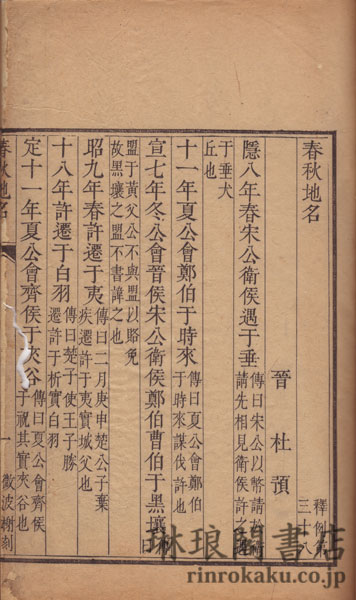 春秋地名
釋例第
三十八
晉 杜 預
隱八年春宋公衛侯遇于垂
傳曰宋公以幣請於衛
請先相見衛侯許之
于垂犬
丘也
十一年夏公會鄭伯于時來
傳曰夏公會鄭伯
于時來謀伐許也
宣七年冬公會晉侯宋公衛侯鄭伯曹伯于黑壤
曰
盟于黃父公不與盟以賂免
故黑壤之盟不書諱之也
昭九年春許遷于夷
傳曰二月庚申楚公子棄
疾遷許于夷實城父也
十八年許遷于白羽
傳曰楚子使王子勝
遷許于析實白羽
定十一年夏公會齊侯于夾谷
傳曰夏公會齊侯
于祝其實夾谷也
春秋地名
一
微波榭刻
琳琅閣書店
rinrokaku.co.jp